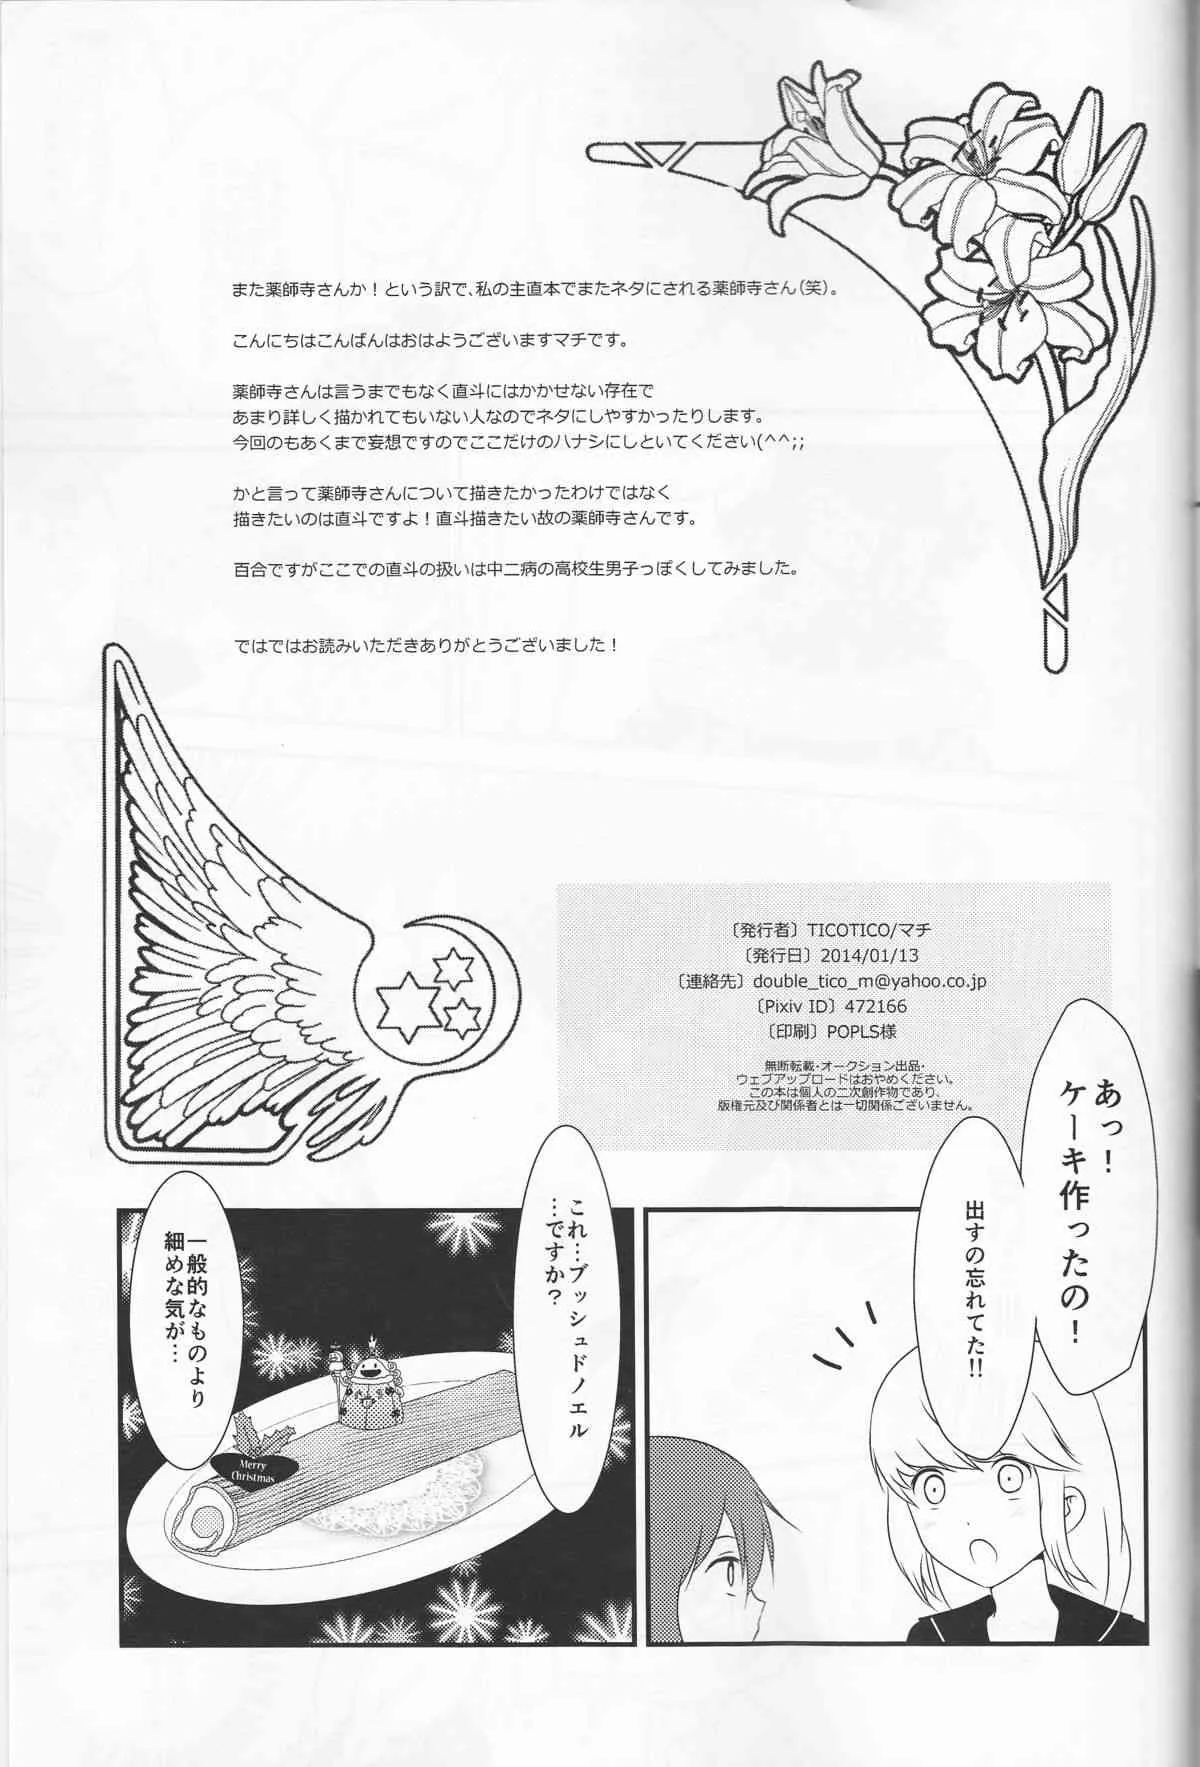 また薬師寺さんか！という訳で、私の主直本でまたネタにされる薬師寺さん（笑）。
こんにちはこんばんはおはようございますマチです。
薬師寺さんは言うまでもなく直斗にはかかせない存在で
あまり詳しく描かれてもいない人なのでネタにしやすかったりします。
今回のもあくまで妄想ですのでここだけのハナシにしといてください(^^;;
かと言って薬師寺さんについて描きたかったわけではなく
描きたいのは直斗ですよ！直斗描きたい故の薬師寺さんです。
百合ですがここでの直斗の扱いは中二病の高校生男子っぽくしてみました。
ではではお読みいただきありがとうございました！
〔発行者〕TICOTICO/マチ
〔発行日〕2014/01/13
〔連絡先〕double_tico_m@yahoo.co.jp
〔Pixiv ID〕472166
〔印刷〕POPLS様
無断転載・オークション出品・
ウェブアップロードはおやめください。
この本は個人の二次創作物であり、
版権元及び関係者とは一切関係ございません。
あっ！
ケーキ作ったの！
出すの忘れてた!!
これ…ブッシュドノエル
…ですか？
一般的なものより
細めな気が…
Merry
Christmas